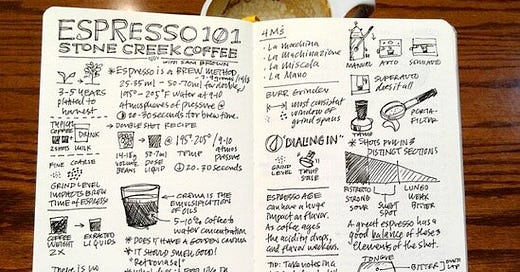 ESPRESSO 101
STONE CREEK COFFEE
WITH SAM BROWN
3-5 YEARS
planted to
harvest
* ESPRESSO is a BREW METHOD
25-35 ml - 50-70ml for double
195°-205°F water at 9-10
atmospheres of pressure @
20-30 seconds for brew time.
TYPICAL
COFFEE
DRINK
→ DOUBLE SHOT RECIPE
@ 195°-205°
9-10
atmos
pressure
14-18g
BEANS
50-70ml
LIQUID
TEMP
20-30 SECONDS
FINE COARSE
GRIND LEVEL
IMPACTS BREW
TIME of ESPRESSO
COFFEE
WEIGHT
2X
EXTRACTED
LIQUIDS
CREMA IS THE
EMULSIFICATION
OF OILS
5-10% coffee to
water concentration
* DOES IT HAVE A GOLDEN CREMA
* IT SHOULD SMELL GOOD!
4 M's
• La Machina
• La Machinazione
• La Miscela
• La Mano
BURR Grinders
most consistent
window of
grind sizes
"DIALING IN"
GRIND
LEVEL
TRUMP
DOSE
ESPRESSO AGE
can have a huge
impact on flavor.
As coffee ages
the acidity drops,
and flavor weakens.
TIP: Take notes
MANUEL
AUTO
SEMIAUTO
SUPERAUTO
does it all
TAMP
PORTA-
FILTER
* SHOTS PULL IN 3
DISTINCT SECTIONS
RISTRETTO
STRONG
SOUR
SWEET
SPOT
LUNGO
WEAK
BITTER
A great espresso has a
good balance of these 3
elements of the shot.
TONGUE
BITTER